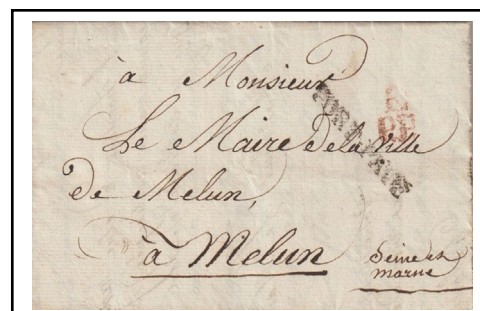 à Monsieur
Le Maire de la Ville
de Melun,
à Melun
Seine et
marne